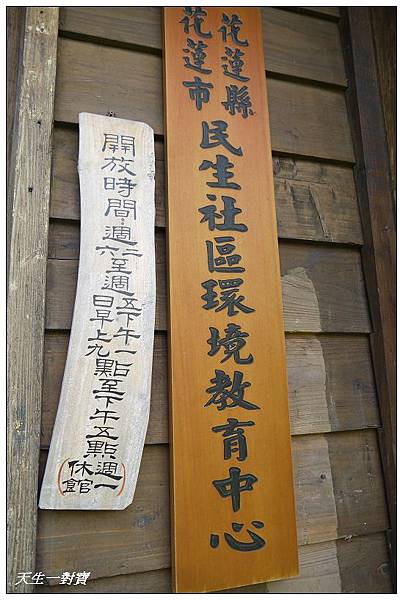 花蓮縣
花蓮市
民生社區環境教育中心
開放時間:週二至週五下午一點至下午五點週一
六日早上九
(休館)
天生一對寶